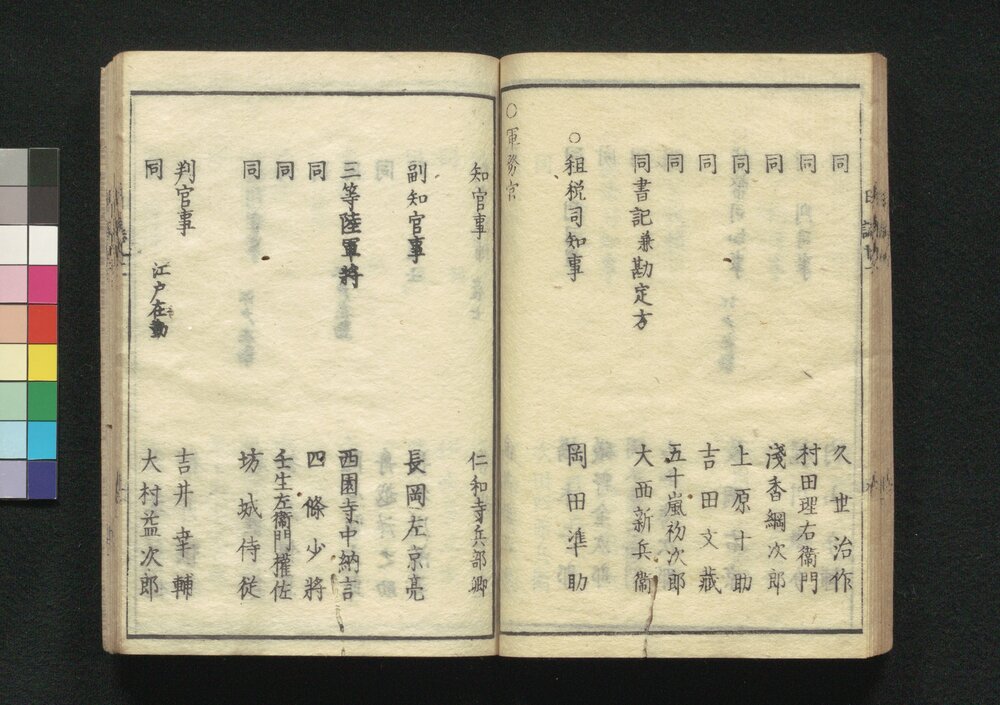 同 久世治作
同 村田理右衞門
同 淺香綱次郎
同 上原十助
同 吉田文藏
同 五十嵐初次郎
同書記兼勘定方 大西新兵衞
○租税司知事 岡田準助
○軍務官
知官事 仁和寺兵部卿
副知官事 長岡左京亮
三等陸軍將 西園寺中納言
同 四條少將
同 壬生左衞門權佐
同 坊城侍従
判官事 吉井幸輔
同 江戸在勤 大村益次郎